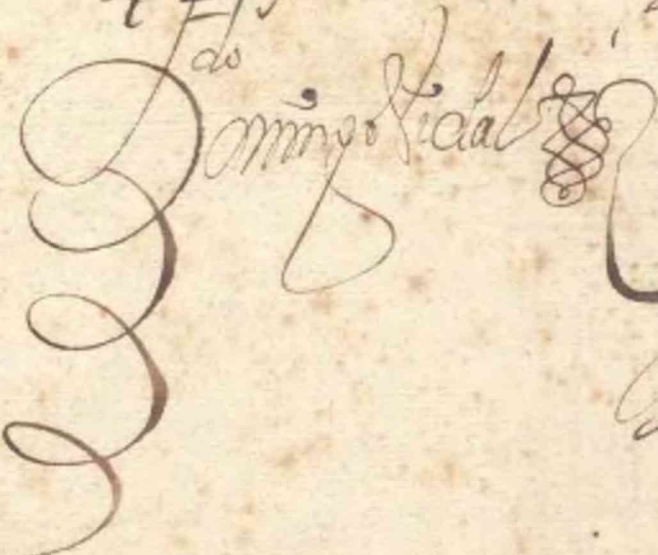 do
Domingo Vidal